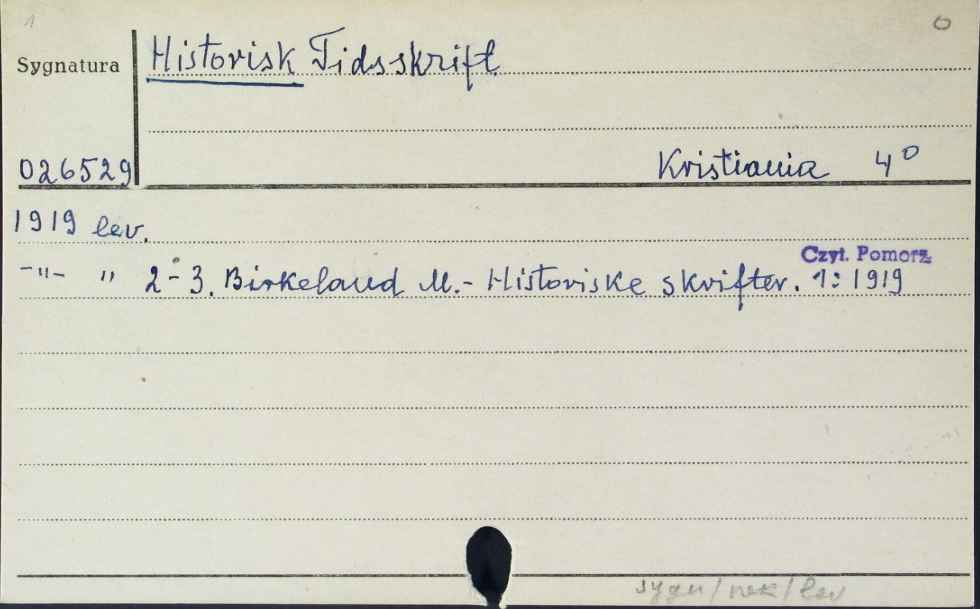 1 0
Sygnatura Historisk Tidsskrift
026529 Kristiania 4°
1919 lev.
Czyt. Pomorz.
-"- " 2-3. Birkeland M.- Historiske skrifter. 1: 1919
sygn/rek/lev